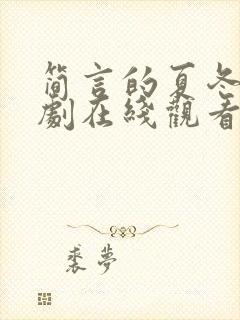 简言的夏冬
劇在綫觀看
裘夢